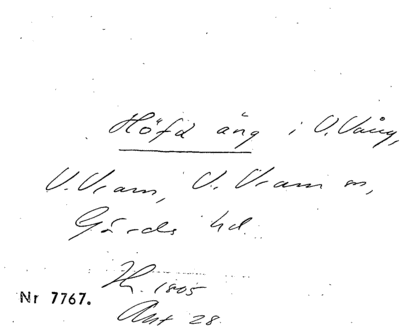 Höfd äng i V. Vång,
V. Vram, V. Vram sn,
Gärds hd.
H. 1805
Akt 28
Nr 7767.